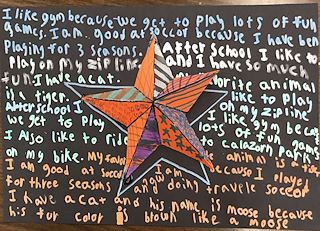 I like gym because we get to play lots of fun
games. I am. good at soccer because I have ben
Playing for 3 seasons. After school I like to
play on my zipline and I have so much
fun. I have a cat. my favorite animal
is a tiger. like to play
After school I on my zipline
we get to Play I like gym becau
I Also like to ride lots of fun game
on my bike. My favor to calazorin park.
I am good at soccer animal is a tiger
for three seasons I am because I played
I have a cat and his name is moose because
his fur color is blown like a moose